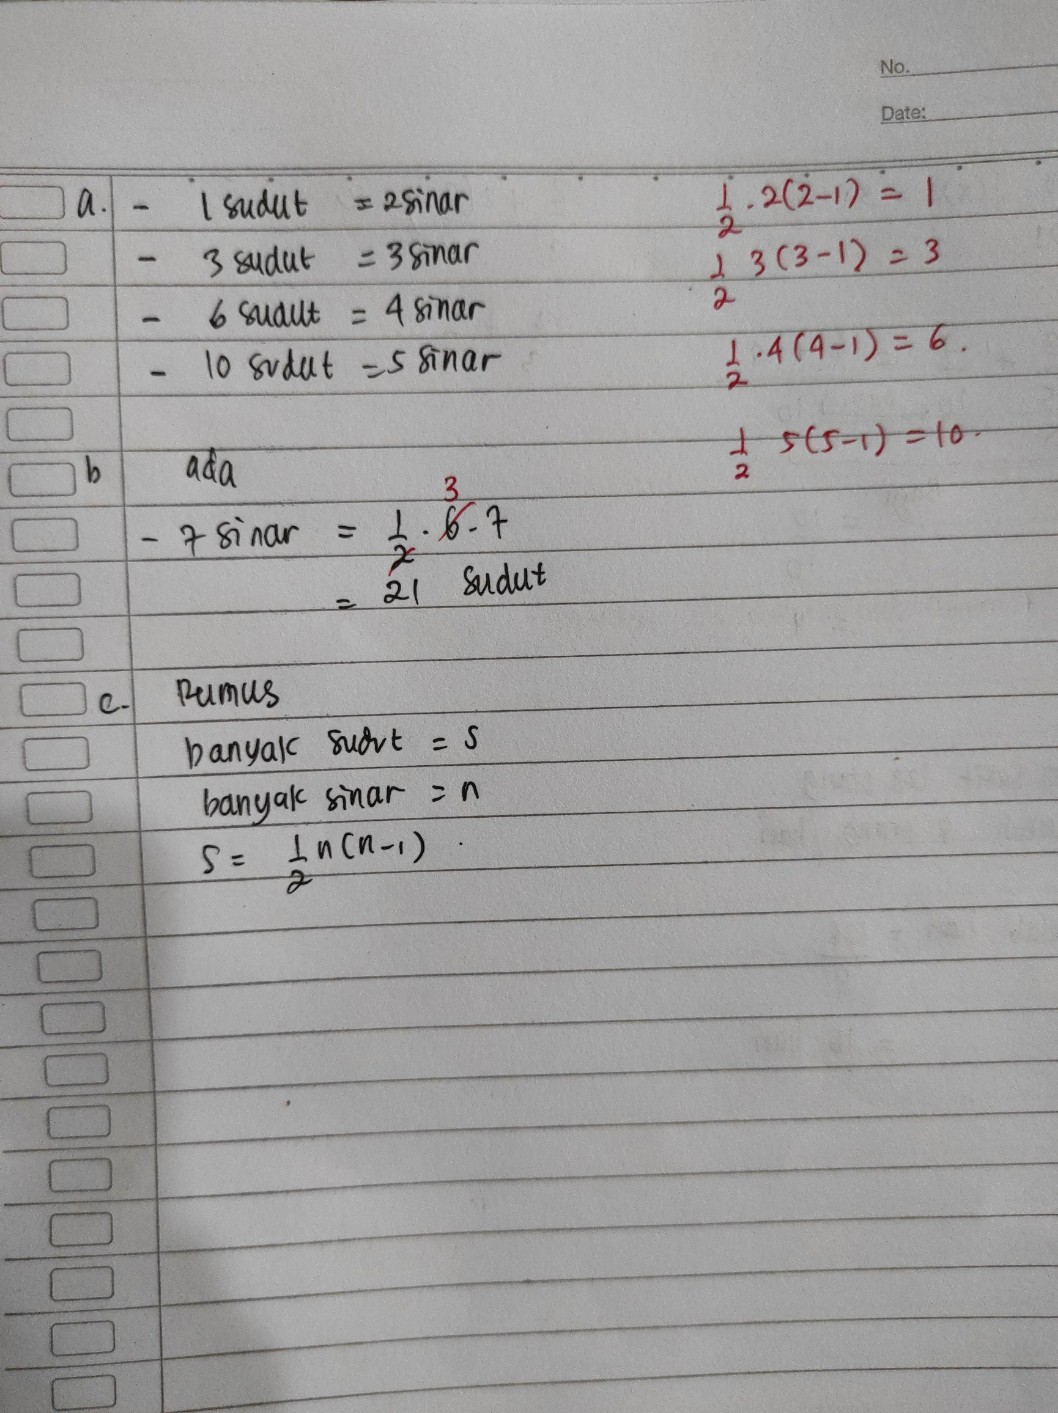 No.
Date:
a. - 1 sudut = 2 sinar 1/2 . 2(2-1) = 1
- 3 sudut = 3 sinar 1/2 3(3-1) = 3
- 6 sudut = 4 sinar
- 10 sudut = 5 sinar 1/2 . 4(4-1) = 6.
1/2 5(5-1) = 10.
b ada
3
- 7 sinar = 1/2 . 6 . 7
= 21 sudut
c. Rumus
banyak sudut = s
banyak sinar = n
S = 1/2 n(n-1)